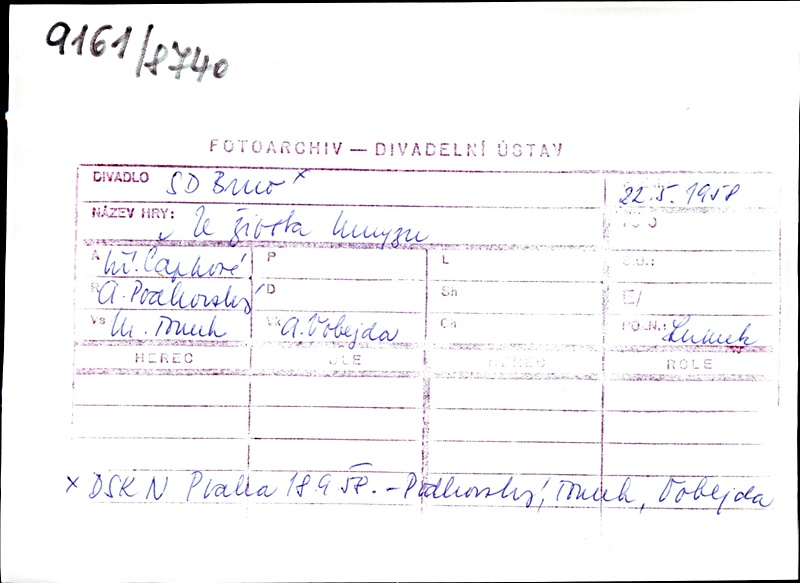 9161/8740
FOTOARCHIV — DIVADELNÍ ÚSTAV
DIVADLO SD Brno x 22.5.1958
NÁZEV HRY: Ze života hmyzu
A bř. Čapkové P L
R A. Podhorský D Sh
Vs M. Tomek Vk A. Vobejda Ch POZN.:
HEREC ROLE HEREC ROLE
x DSK N Praha 18 9 58. – Podhorský, Tomek, Vobejda